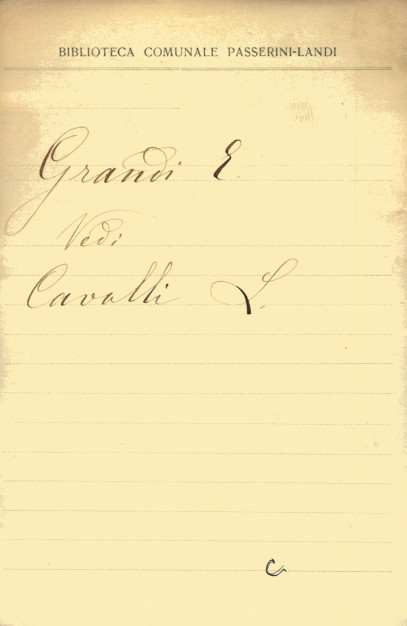 BIBLIOTECA COMUNALE PASSERINI-LANDI
Grandi E.
Vedi
Cavalli L.
C